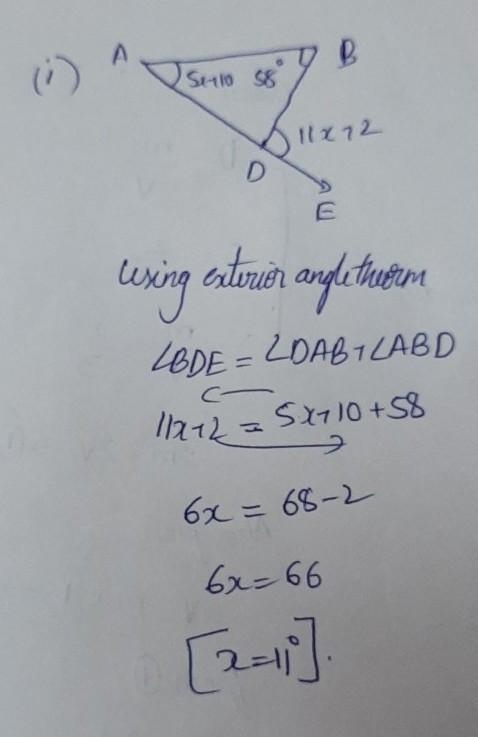 (i) A B
5x+10 58°
11x+2
D
E
Using exterior angle theorm
∠BDE = ∠DAB+∠ABD
11x+2 = 5x+10+58
6x = 68-2
6x = 66
[x=11°].